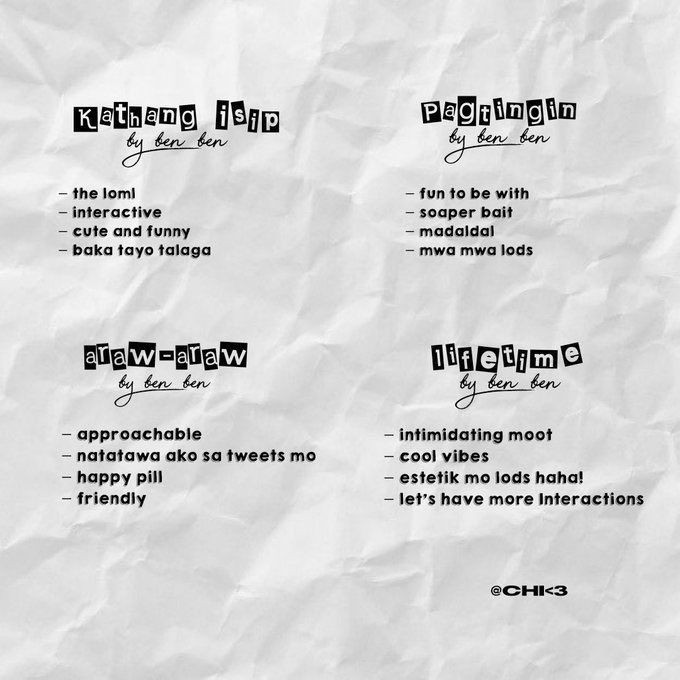 Kathang isip
by ben ben
– the loml
– interactive
– cute and funny
– baka tayo talaga
Pagtingin
by ben ben
– fun to be with
– soaper bait
– madaldal
– mwa mwa lods
araw-araw
by ben ben
– approachable
– natatawa ako sa tweets mo
– happy pill
– friendly
lifetime
by ben ben
– intimidating moot
– cool vibes
– estetik mo lods haha!
– let's have more Interactions
@CHI<3